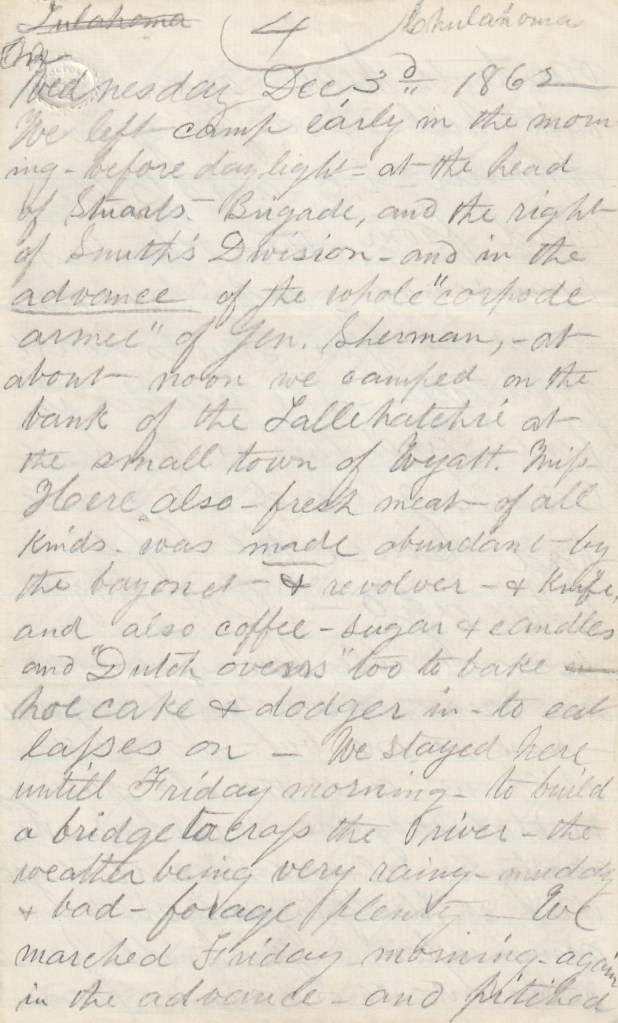 Tulahoma 4 Chulahoma
On
Wednesday Dec 3d 1862
We left camp early in the morn-
ing - before daylight - at the head
of Stuarts Brigade, and the right
of Smith's Division - and in the
advance of the whole "corps de
armee" of Gen. Sherman, - at
about noon we camped on the
bank of the Tallehatchie at
the small town of Wyatt. Miss
Here also - fresh meat - of all
kinds. was made abundant - by
the bayonet - & revolver - & knife,
and also coffee - sugar & candles
and "Dutch ovens" too to bake in
hoe cake & dodger in - to eat
lasses on - We stayed here
untill Friday morning - to build
a bridge across the river - the
weather being very rainy - muddy
& bad - forage plenty - We
marched Friday morning - again
in the advance - and pitched